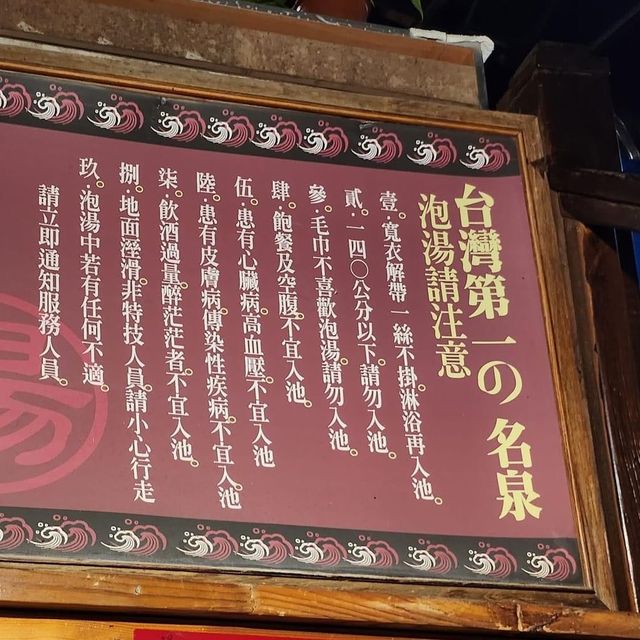 台灣第一の名泉
泡湯請注意
壹。寬衣解帶一絲不掛淋浴再入池。
貳。一四〇公分以下。請勿入池。
參。毛巾不喜歡泡湯請勿入池。
肆。飽餐及空腹。不宜入池。
伍。患有心臟病。高血壓不宜入池
陸。患有皮膚病。傳染性疾病。不宜入池
柒。飲酒過量。醉茫茫者。不宜入池。
捌。地面溼滑。非特技人員。請小心行走
玖。泡湯中若有任何不適。
請立即通知服務人員。
湯